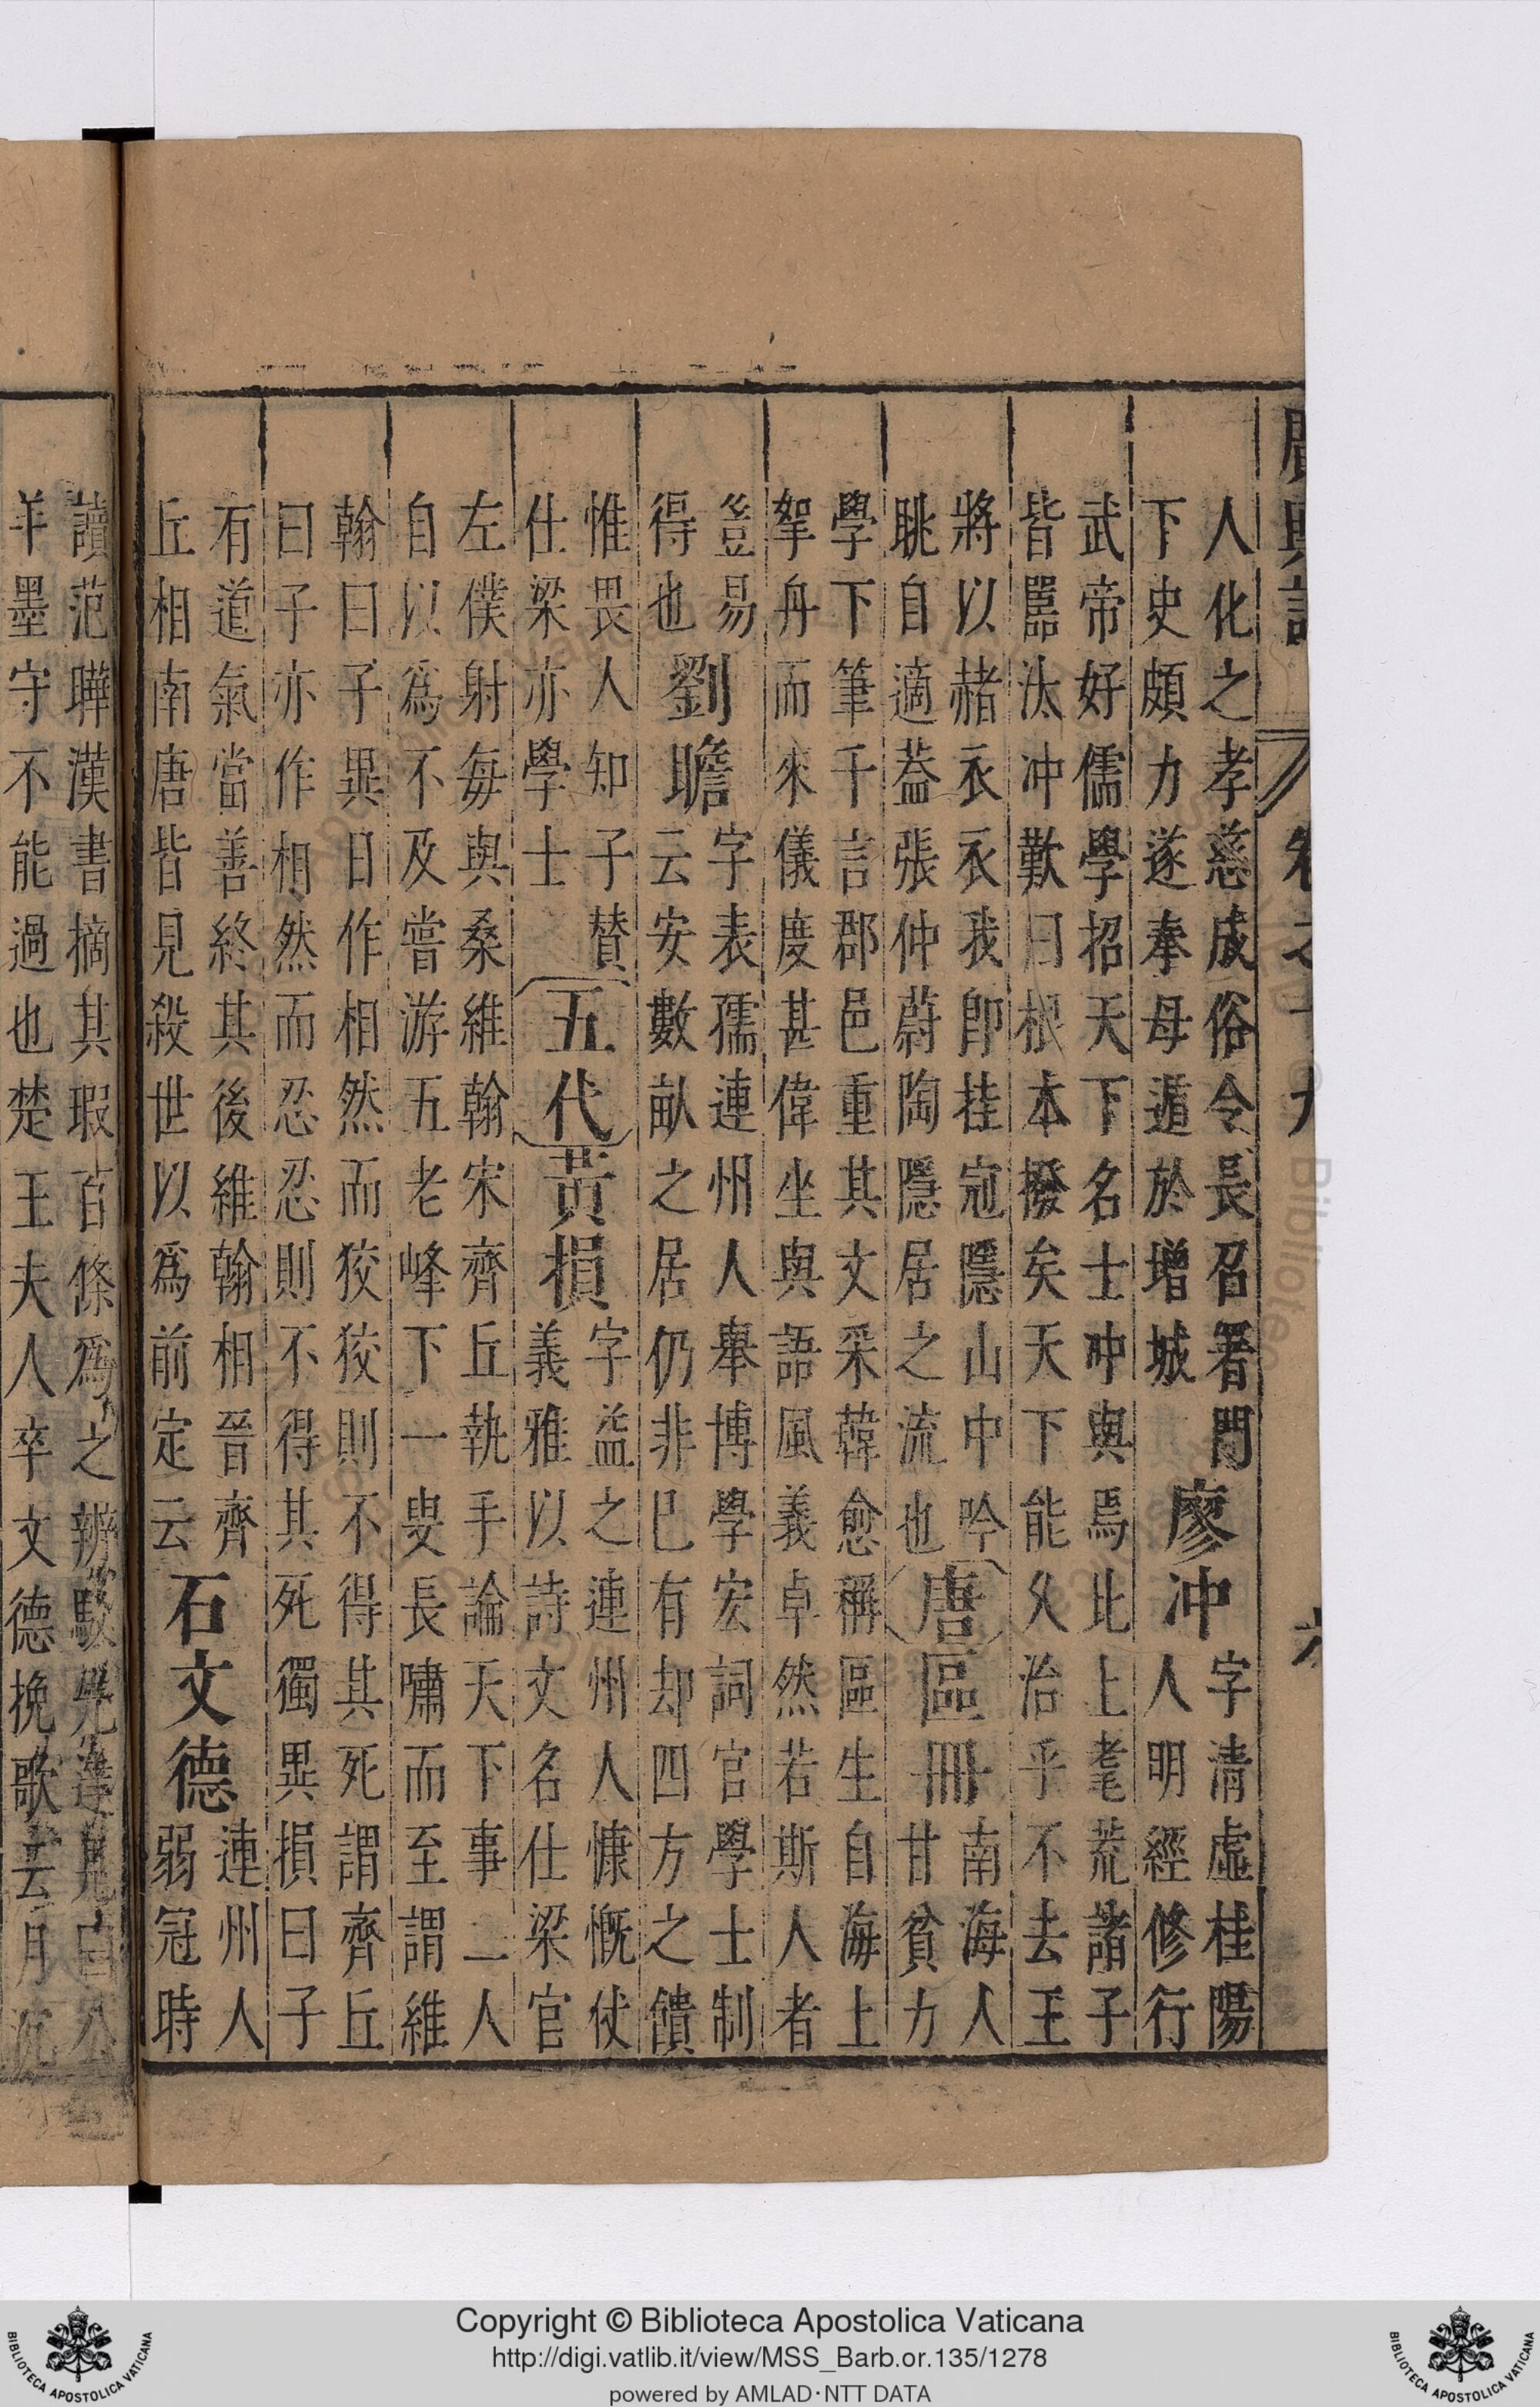 廣輿記 卷之十九
人化之孝慈成俗令長召署門
下史頗力遂奉母遁於增城
廖冲
字清虛桂陽
人明經修行
武帝好儒學招天下名士冲與焉比上耄荒諸子
皆嚚汰冲歎曰根本撥矣天下能久治乎不去王
將以赭衣衣我即挂冠隱山中吟
眺自適葢張仲蔚陶隱居之流也
唐
區冊
南海人
甘貧力
學下筆千言郡邑重其文采韓愈稱區生自海上
拏舟而來儀度甚偉坐與語風義卓然若斯人者
豈易
得也
劉瞻
字表孺連州人舉博學宏詞官學士制
云安數畝之居仍非巳有却四方之饋
惟畏人知子贊
仕梁亦學士
五代
黃損
字益之連州人慷慨仗
義雅以詩文名仕梁官
左僕射每與桑維翰宋齊丘執手論天下事二人
自以爲不及嘗游五老峰下一叟長嘯而至謂維
翰曰子異日作相然而狡狡則不得其死謂齊丘
曰子亦作相然而忍忍則不得其死獨異損曰子
有道氣當善終其後維翰相晉齊
丘相南唐皆見殺世以爲前定云
石文德
連州人
弱冠時
讀范曄漢書摘其瑕百條爲之辨駁先達見
羊墨守不能過也楚王夫人卒文德挽歌云月沉
Copyright © Biblioteca Apostolica Vaticana
http://digi.vatlib.it/view/MSS_Barb.or.135/1278
powered by AMLAD·NTT DATA
BIBLIOTECA APOSTOLICA VATICANA
BIBLIOTECA APOSTOLICA VATICANA